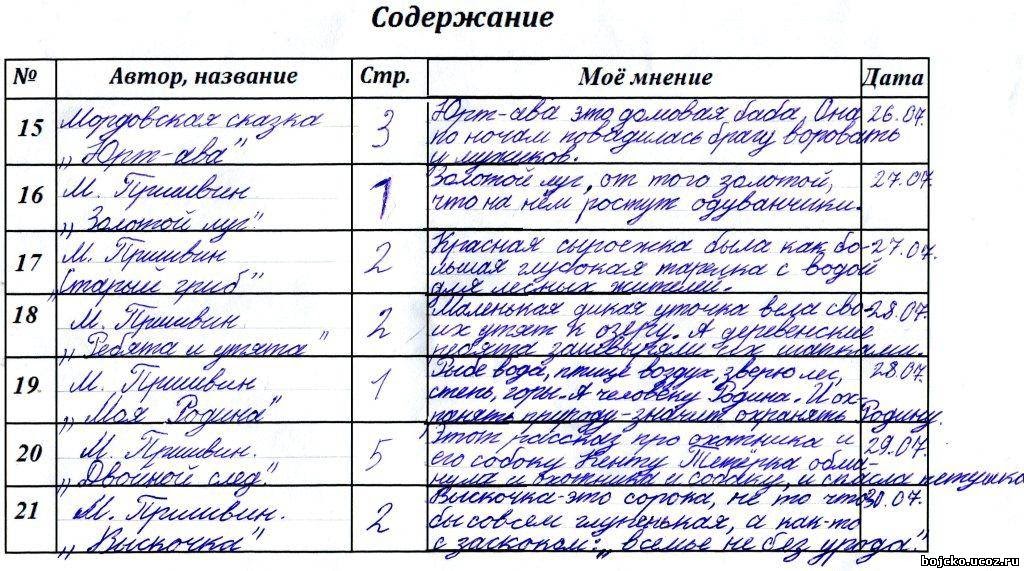 Содержание
№ Автор, название Стр. Моё мнение Дата
15 Мордовская сказка „Юрт-ава" 3 Юрт-ава это домовая баба. Она 26.07.
по ночам повадилась брагу воровать
у мужиков.
16 М. Пришвин „Золотой луг". 1 Золотой луг, от того золотой, 27.07.
что на нём ростут одуванчики.
17 М. Пришвин „Старый гриб" 2 Красная сыроежка была как бо- 27.07.
льшая глубокая тарелка с водой
для лесных жителей.
18 М. Пришвин. „Ребята и утята" 2 Маленькая дикая уточка вела сво- 28.07.
их утят к озеру. А деревенские
ребята зашвыряли их шапками.
19 М. Пришвин. „Моя Родина" 1 Рыбе вода, птице воздух, зверю лес, 28.07.
степь, горы. А человеку Родина. И ох-
ранять природу-значит охранять Родину.
20 М. Пришвин. „Двойной след". 5 Этот рассказ про охотника и 29.07.
его собоку Кенту. Тетёрка обма-
нула и охотника и собаку, и спасла петушка
21 М. Пришвин. „Выскочка" 2 Выскочка-это сорока, не то что 30.07.
бы совсем глупенькая, а как-то
с заскоком: „всемье не без урода".
bojcko.ucoz.ru